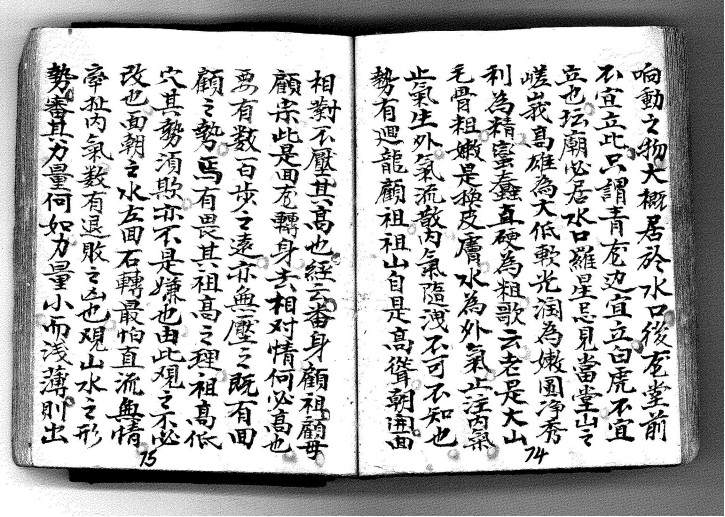 响動之物大概居於水口後龙堂前
不宜立此只謂青龙边宜立白虎不宜
立也坛廟必居水口羅星忌見當堂山之
嵯峩高雄為大低軟光润為嫩圓净秀
利為精蜜蠢直硬為粗歌云老是大山
毛骨粗嫩是換皮膚水為外氣止注内氣
止氣生外氣流散内氣隨洩不可不知也
勢有廽龍顧祖祖山自是高聳朝囬面
74
相對不壓其高也経云番身顧祖顧母
顧宗此是囬龙轉身去相对情何必高也
要有数百步之遠亦無壓之既有囬
顧之勢焉有畏其祖高之理祖高低
穴其勢須欺亦不是嫌也由此覌之不必
改也面朝之水左囬右轉最怕直流無情
牽扯内氣数有退敗之凶也覌山水之形
勢審其力量何如力量小而浅薄則出
75